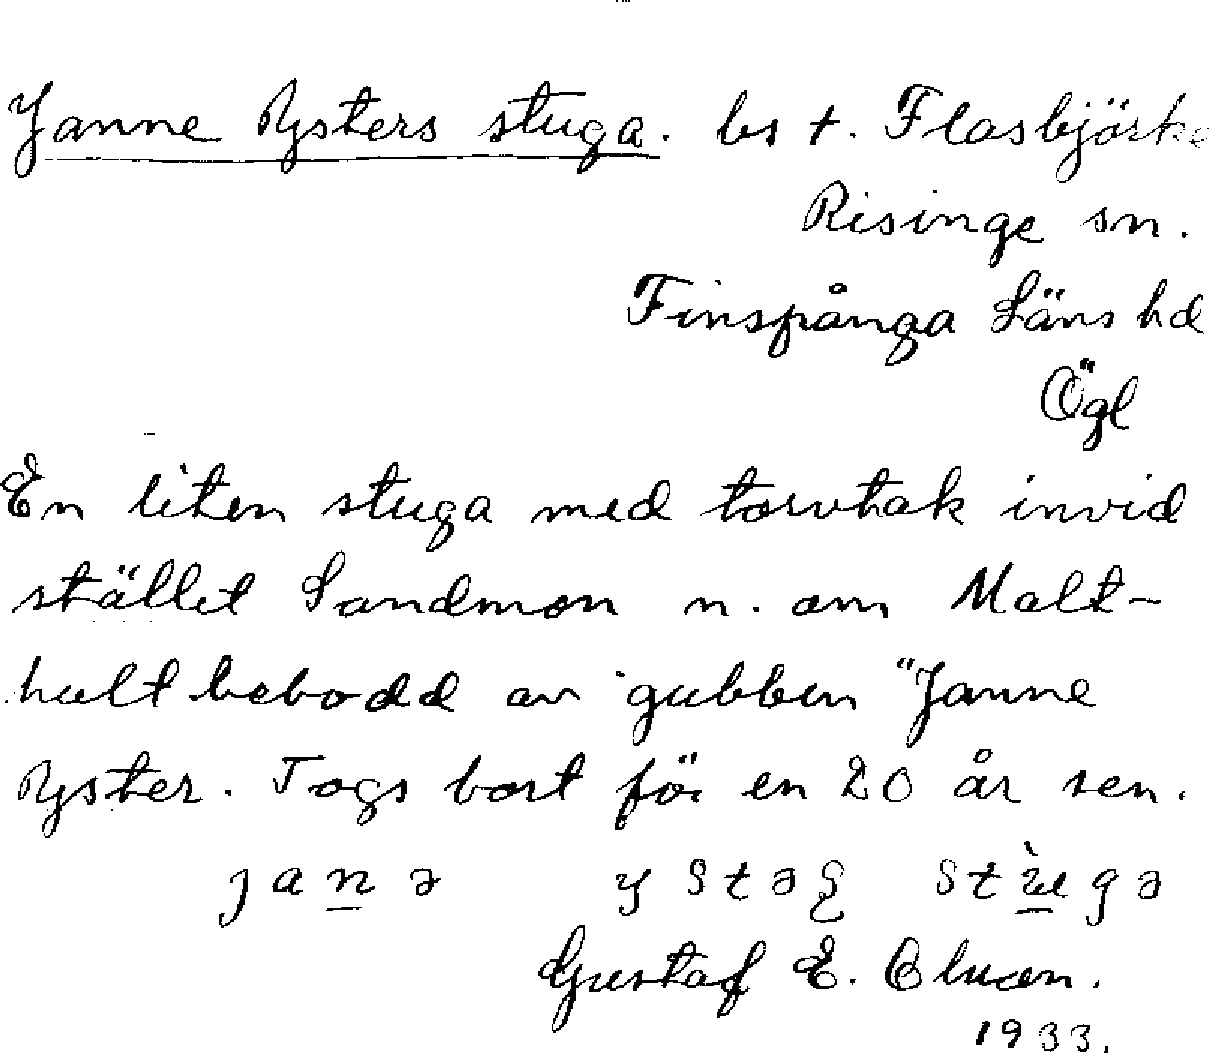 Janne Rysters stuga. bs t. Flasbjörke
Risinge sn.
Finspånga Läns hd
Ögl
En liten stuga med torvtak invid
stället Sandmon n. om Malt-
hult bebodd av gubben "Janne
Ryster. Togs bort för en 20 år sen.
Gustaf E.
1933.